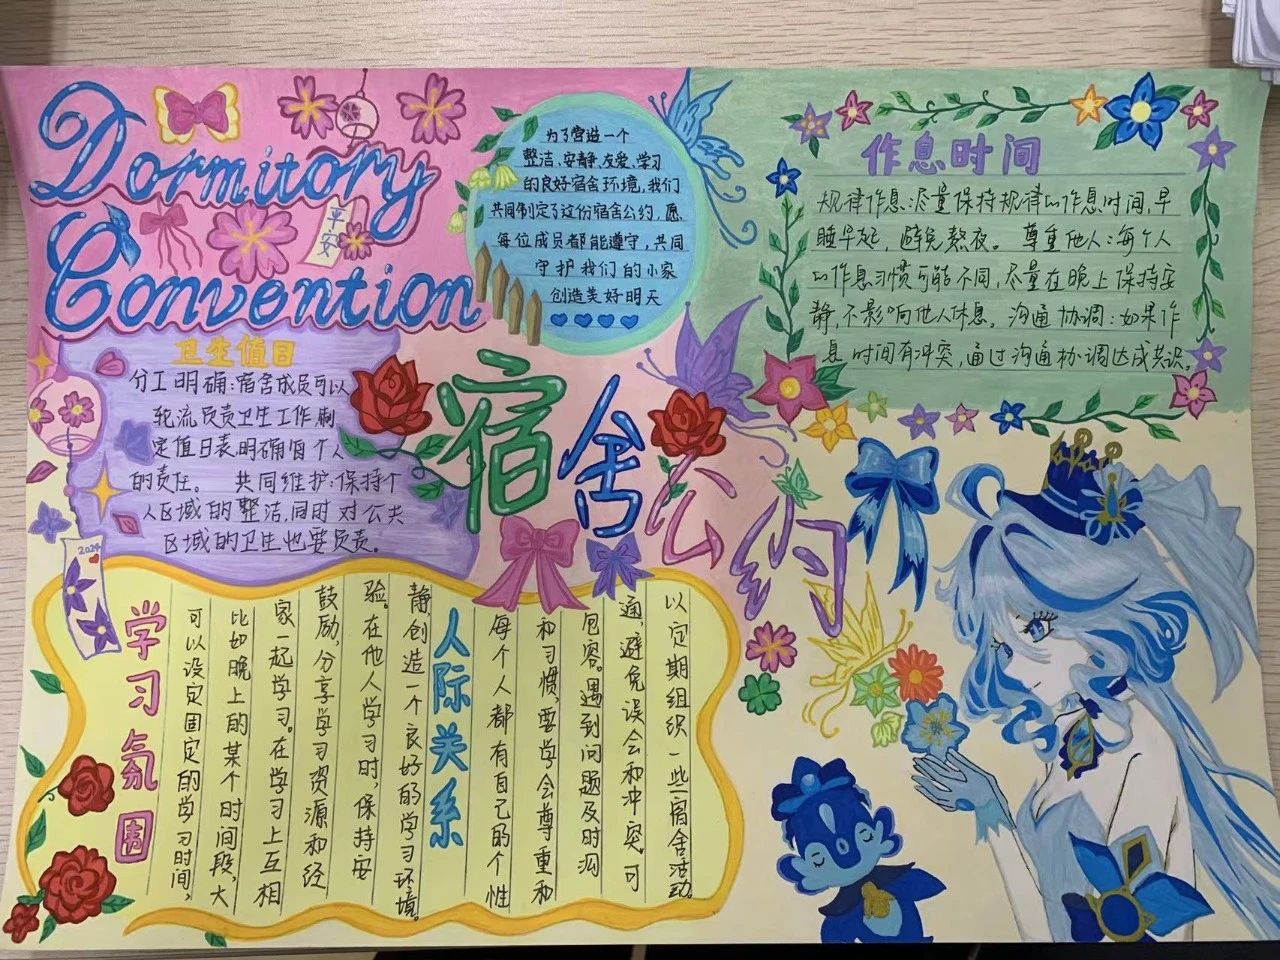 Dormitory
Convention
早安
为了营造一个
整洁、安静、友爱、学习
的良好宿舍环境,我们
共同制定了这份宿舍公约,愿
每位成员都能遵守,共同
守护我们的小家
创造美好明天
作息时间
规律作息:尽量保持规律的作息时间,早
睡早起,避免熬夜。尊重他人:每个人
的作息习惯可能不同,尽量在晚上保持安
静,不影响他人休息。沟通协调:如果作
息时间有冲突,通过沟通协调达成共识。
卫生值日
分工明确:宿舍成员可以
轮流负责卫生工作,制
定值日表明确每个人
的责任。共同维护:保持个
人区域的整洁,同时对公共
区域的卫生也要负责。
宿舍公约
2024
学习氛围
可以设定固定的学习时间,
比如晚上的某个时间段,大
家一起学习。在学习上互相
鼓励,分享学习资源和经
验。在他人学习时,保持安
静创造一个良好的学习环境。
人际关系
每个人都有自己的个性
和习惯,要学会尊重和
包容。遇到问题及时沟
通,避免误会和冲突。可
以定期组织一些宿舍活动。